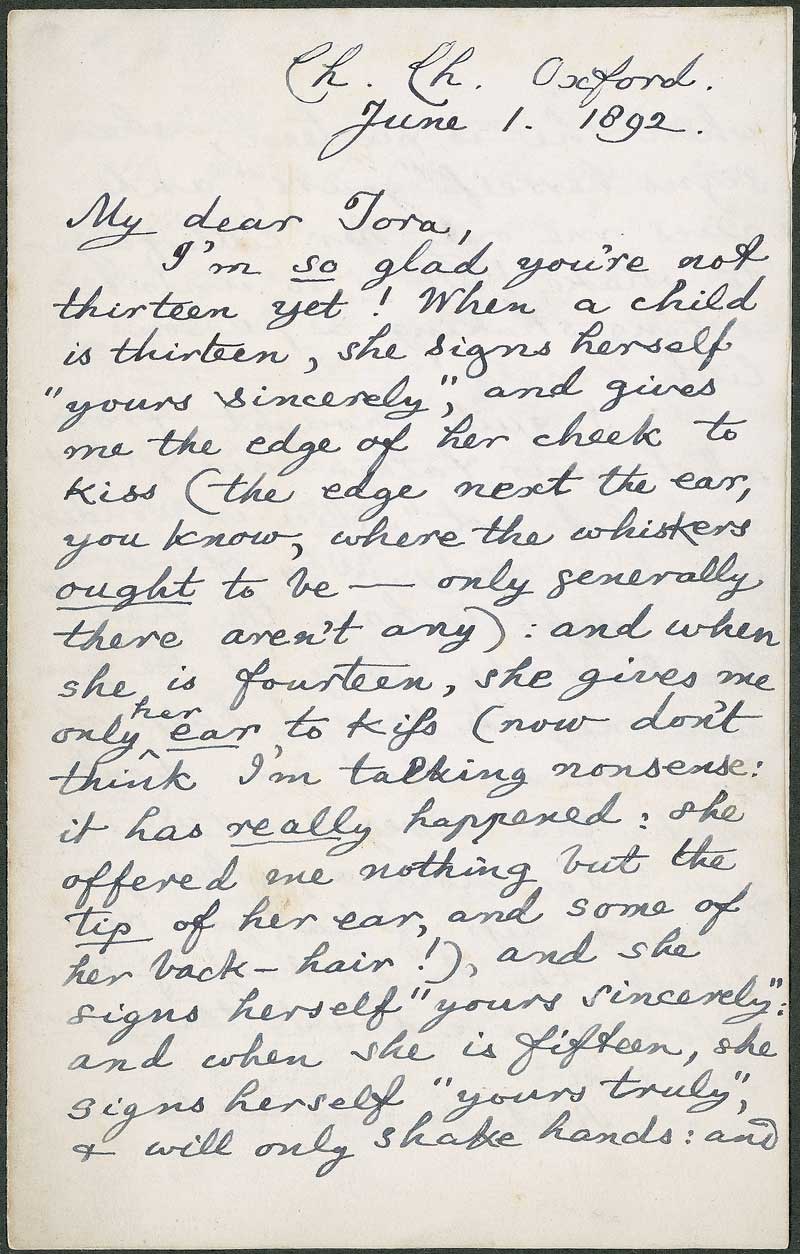 Ch. Ch. Oxford.
June 1. 1892.
My dear Tora,
I'm so glad you're not
thirteen yet! When a child
is thirteen, she signs herself
"yours sincerely", and gives
me the edge of her cheek to
kiss (the edge next the ear,
you know, where the whiskers
ought to be — only generally
there aren't any): and when
she is fourteen, she gives me
only her ear to kiss (now don't
think I'm talking nonsense:
it has really happened: she
offered me nothing but the
tip of her ear, and some of
her back-hair!), and she
signs herself "yours sincerely":
and when she is fifteen, she
signs herself "yours truly",
& will only shake hands: and